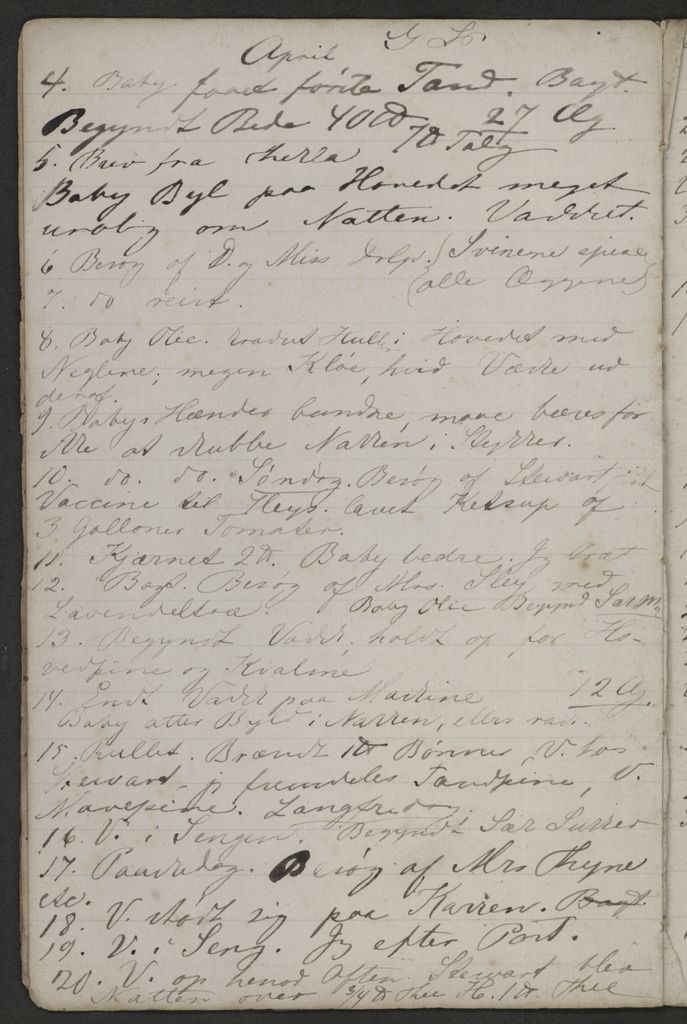 April
4. Baby faaet første Tand. Bagt.
Begyndt Bede 40 ℔ 27 Æg
7 ℔ Talg
5. Brev fra Thekla
Baby Byl paa Hovedet meget
urolig om Natten. Vadsket.
6 Besøg af D. og Miss (Svinene spise
7. do reist. alle Æggene)
8. Baby Olie. Hull i Hovedet med
Neglene, megen Kløe, hvid Vædske ud
deraf.
9. Babys Hænder bundne, maae bæres for
ikke at skubbe Næsen i Stykker.
10. do. do. Søndag. Besøg af Stewart
Vaccine til Fleys. lavet Ketsup af
3 Galloner Tomater.
11. Kjærnet 2 ℔. Baby bedre. Jeg
12. Bagt. Besøg af Mrs. Fley med
Lavendeltræ. Baby Olie Begynd
13. Begyndt Vadsk, holdt op for Ho-
vedpine og Kvalme
14. Endt Vadsk paa Maskine 12 Æg.
Baby atter Byld i Næsen, ellers rask.
15. Rullet. Brændt 1 ℔ Bønner, V. hos
Stewart, jeg fremdeles Tandpine, V.
Mavepine. Langfredag.
16. V. i Sengen. Begyndt
17. Paaskedag. Besøg af Mrs Thyne
etc.
18. V. stødt sig paa Karren. Bagt.
19. V. i Seng. Jeg efter Post.
20. V. op henad Aften. Stewart blev
Natten over 3/4 ℔ Thee H. 1 ℔. Thee